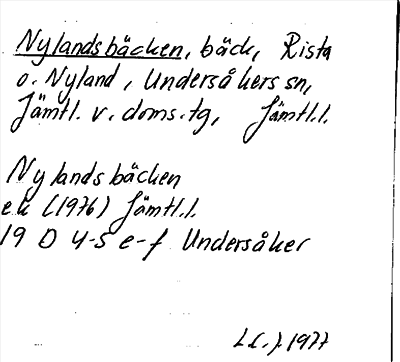 Nylandsbäcken, bäck, Rista
o. Nyland, Undersåkers sn,
Jämtl. v. doms.tg, Jämtl.l.
Nylandsbäcken
ek (1976) Jämtl.l.
19 D 4-5 e-f Undersåker
1977